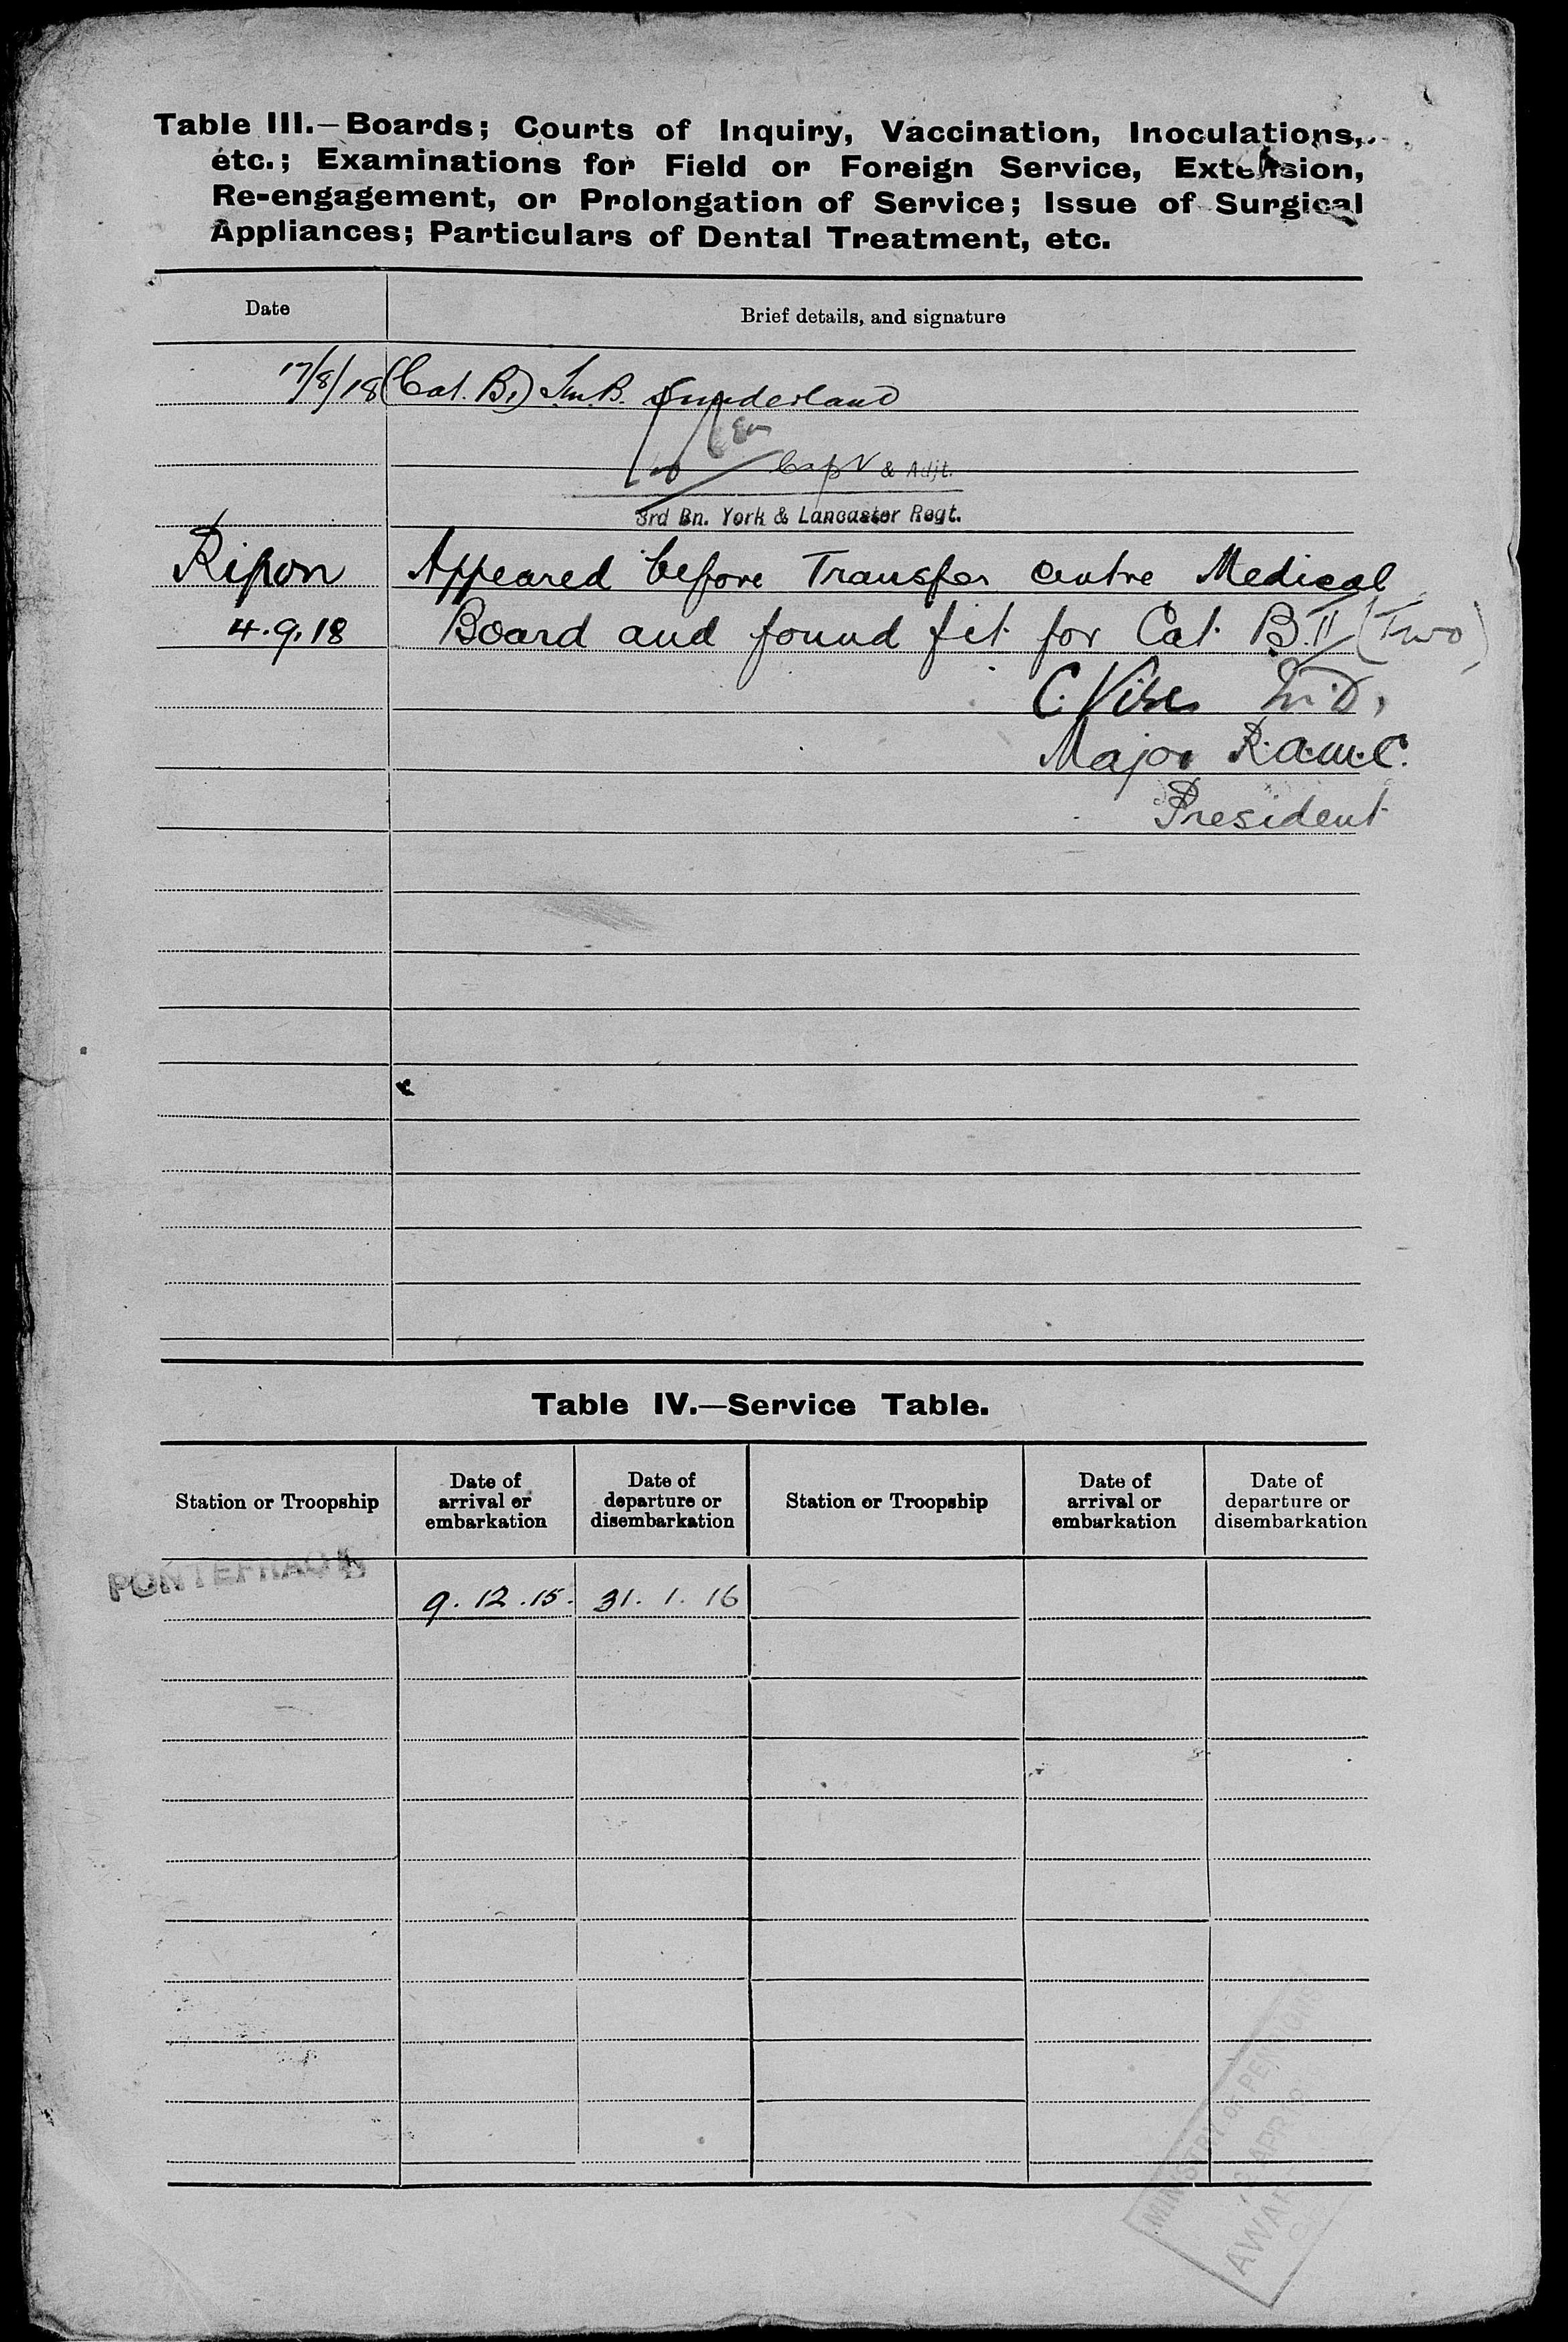 Table III.—Boards; Courts of Inquiry, Vaccination, Inoculations,
etc.; Examinations for Field or Foreign Service, Extension,
Re-engagement, or Prolongation of Service; Issue of Surgical
Appliances; Particulars of Dental Treatment, etc.
Date
Brief details, and signature
17/8/18 (Cat. B1) Sunderland
Capt & Adjt.
3rd Bn. York & Lancaster Regt.
Ripon Appeared before Transfer centre Medical
4.9.18 Board and found fit for Cat. B.II (Two)
C. M.D.
Major R.A.M.C.
President
Table IV.—Service Table.
Station or Troopship
Date of arrival or embarkation
Date of departure or disembarkation
Station or Troopship
Date of arrival or embarkation
Date of departure or disembarkation
PONTEFRACT
9.12.15. 31.1.16
MINISTRY OF PENSIONS
APR